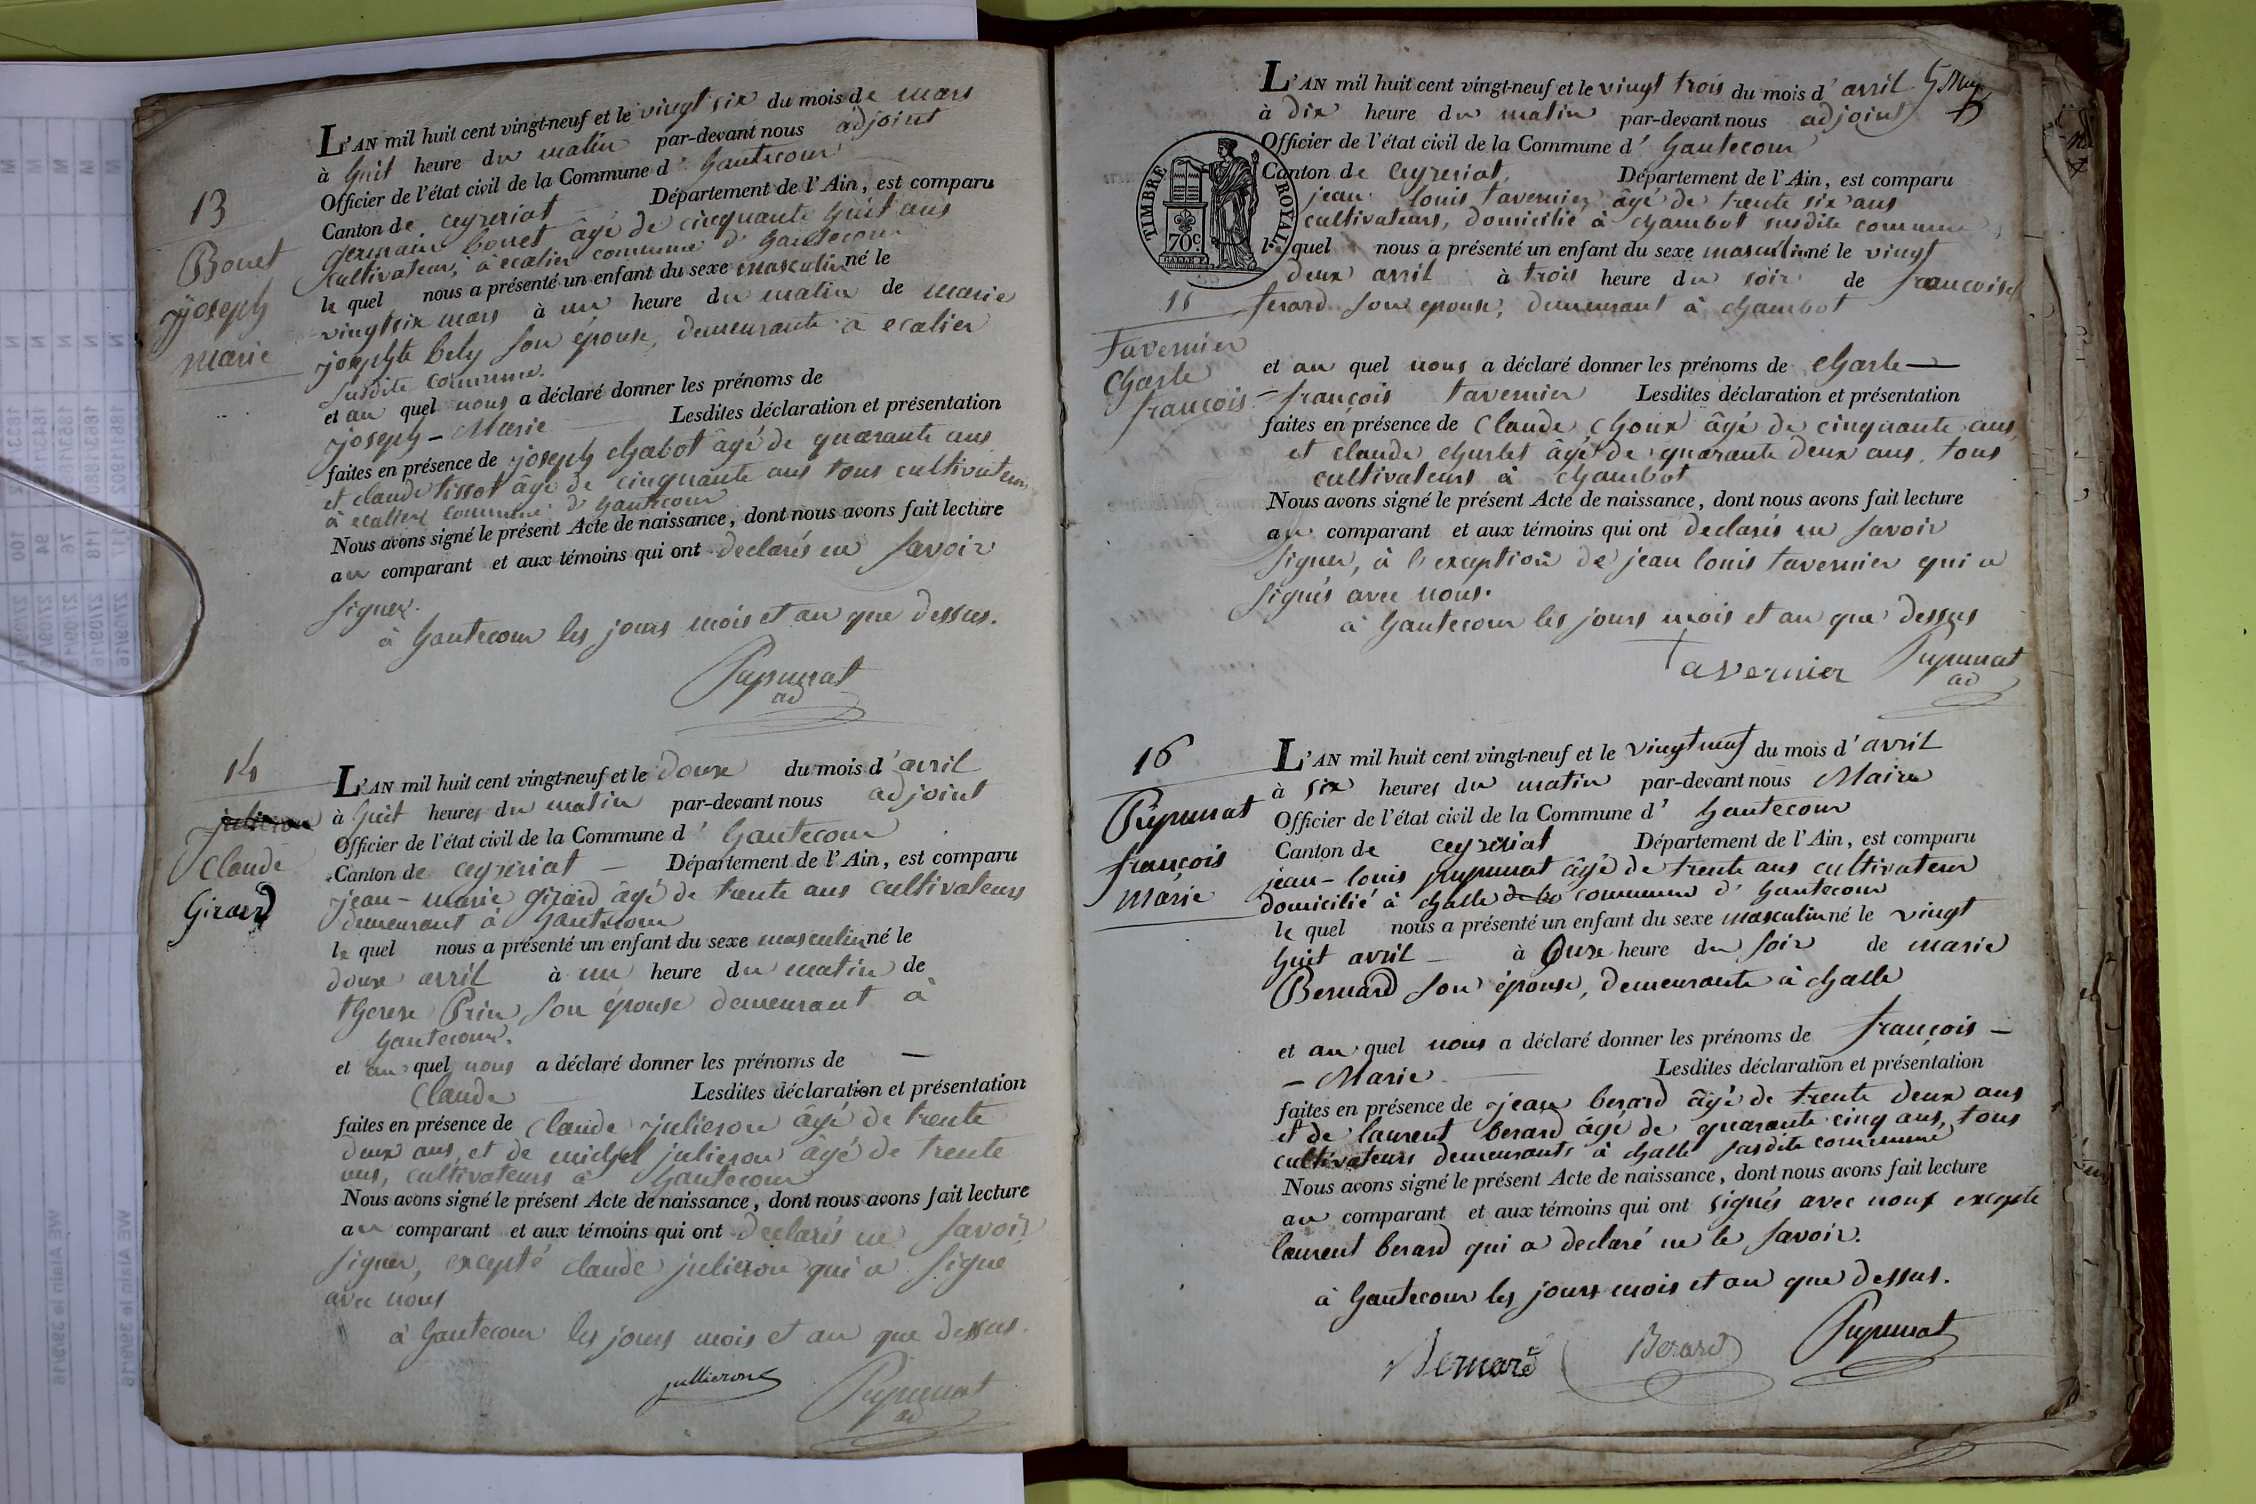 13
Bonet
joseph
marie
L'AN mil huit cent vingt-neuf et le vingt six du mois de mars
à huit heure du matin par-devant nous adjoint
Officier de l'état civil de la Commune d' hautecour
Canton de ceyzeriat Département de l'Ain, est comparu
germain bonet âgé de cinquante huit ans
cultivateur, à ecalier commune d' hautecour
le quel nous a présenté un enfant du sexe masculin né le
vingt six mars à un heure du matin de marie
josephte bely son épouse, demeurante à ecalier
susdite commune.
et au quel nous a déclaré donner les prénoms de
joseph - Marie Lesdites déclaration et présentation
faites en présence de joseph chabot âgé de quarante ans
et claude tissot âgé de cinquante ans tous cultivateurs
à ecalier commune d' hautecour
Nous avons signé le présent Acte de naissance, dont nous avons fait lecture
au comparant et aux témoins qui ont declarés ne savoir
signer.
à hautecour les jours mois et an que dessus.
Pupunat
ad
14
julieron
Claude
Girard
L'AN mil huit cent vingt-neuf et le douze du mois d' avril
à huit heures du matin par-devant nous adjoint
Officier de l'état civil de la Commune d' hautecour
Canton de ceyzeriat Département de l'Ain, est comparu
jean - marie girard âgé de trente ans cultivateurs
demeurant à hautecour
le quel nous a présenté un enfant du sexe masculin né le
douze avril à un heure du matin de
therese Prin son épouse demeurant à
hautecour.
et au quel nous a déclaré donner les prénoms de
Claude Lesdites déclaration et présentation
faites en présence de Claude julieron âgé de trente
deux ans, et de michel julieron âgé de trente
ans, cultivateurs à hautecour
Nous avons signé le présent Acte de naissance, dont nous avons fait lecture
au comparant et aux témoins qui ont declarés ne savoir
signer, excepté claude julieron qui a signe
avec nous
à hautecour les jours mois et an que dessus.
jullieron
Pupunat
ad
L'AN mil huit cent vingt-neuf et le vingt trois du mois d' avril
à dix heure du matin par-devant nous adjoint
Officier de l'état civil de la Commune d' hautecour
Canton de ceyzeriat, Département de l'Ain, est comparu
jean louis tavernier âgé de trente six ans
cultivateurs, domicilié à chambot susdite commune,
le quel nous a présenté un enfant du sexe masculin né le vingt
deux avril à trois heure du soir de francoise
ferard son epouse, demeurant à chambot
TIMBRE ROYAL
70c.
15
tavernier
Charle
françois
et au quel nous a déclaré donner les prénoms de Charle
- françois tavernier Lesdites déclaration et présentation
faites en présence de Claude Choux âgé de cinquante ans,
et claude charlet âgé de quarante deux ans, tous
cultivateurs à chambot
Nous avons signé le présent Acte de naissance, dont nous avons fait lecture
au comparant et aux témoins qui ont declarés ne savoir
signer, à l'exception de jean louis tavernier qui a
signés avec nous.
à hautecour les jours mois et an que dessus
tavernier Pupunat
ad
16
Pupunat
françois
marie
L'AN mil huit cent vingt-neuf et le vingt neuf du mois d' avril
à six heures du matin par-devant nous Maire
Officier de l'état civil de la Commune d' hautecour
Canton de ceyzeriat Département de l'Ain, est comparu
jean - louis pupunat âgé de trente ans cultivateur
domicilié à challe de la commune d' hautecour
le quel nous a présenté un enfant du sexe masculin né le vingt
huit avril à Onze heure du soir de marie
Bernard son épouse, demeurante à challe
et au quel nous a déclaré donner les prénoms de françois -
- Marie Lesdites déclaration et présentation
faites en présence de jean berard âgé de trente deux ans
et de laurent berard âgé de quarante cinq ans, tous
cultivateurs demeurants à challe susdite commune
Nous avons signé le présent Acte de naissance, dont nous avons fait lecture
au comparant et aux témoins qui ont signés avec nous excepte
laurent berard qui a declaré ne le savoir.
à hautecour les jours mois et an que dessus.
Bernard Berard Pupunat